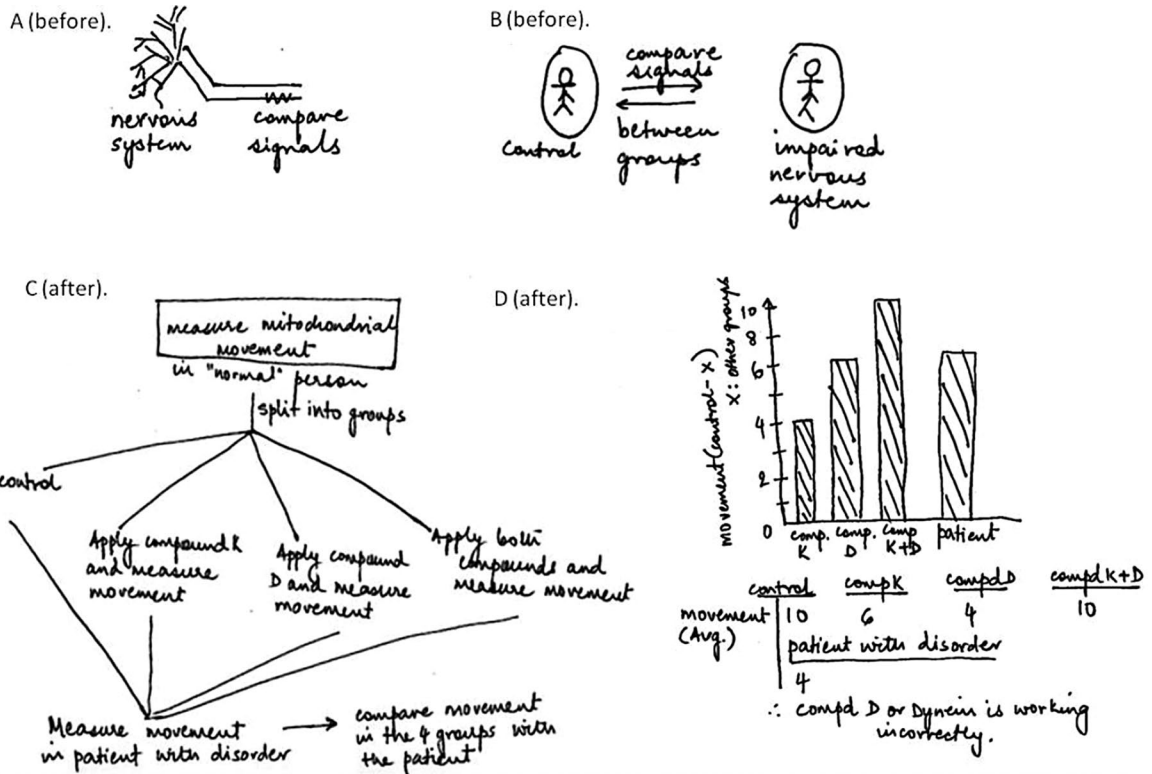 A (before).
nervous
system
compare
signals
B (before).
control
compare
signals
between
groups
impaired
nervous
system
C (after).
measure mitochondrial
movement
in "normal" person
split into groups
control
Apply compound K
and measure
movement
Apply compound
D and measure
movement
Apply both
compounds and
measure movement
Measure movement
in patient with disorder
compare movement
in the 4 groups with
the patient
D (after).
movement (control - x)
x: other groups
10
8
6
4
2
0
comp.
K
comp.
D
comp
K+D
patient
control compK compdD compdK+D
movement 10 6 4 10
(Avg.)
patient with disorder
4
∴ compd D or Dynein is working
incorrectly.